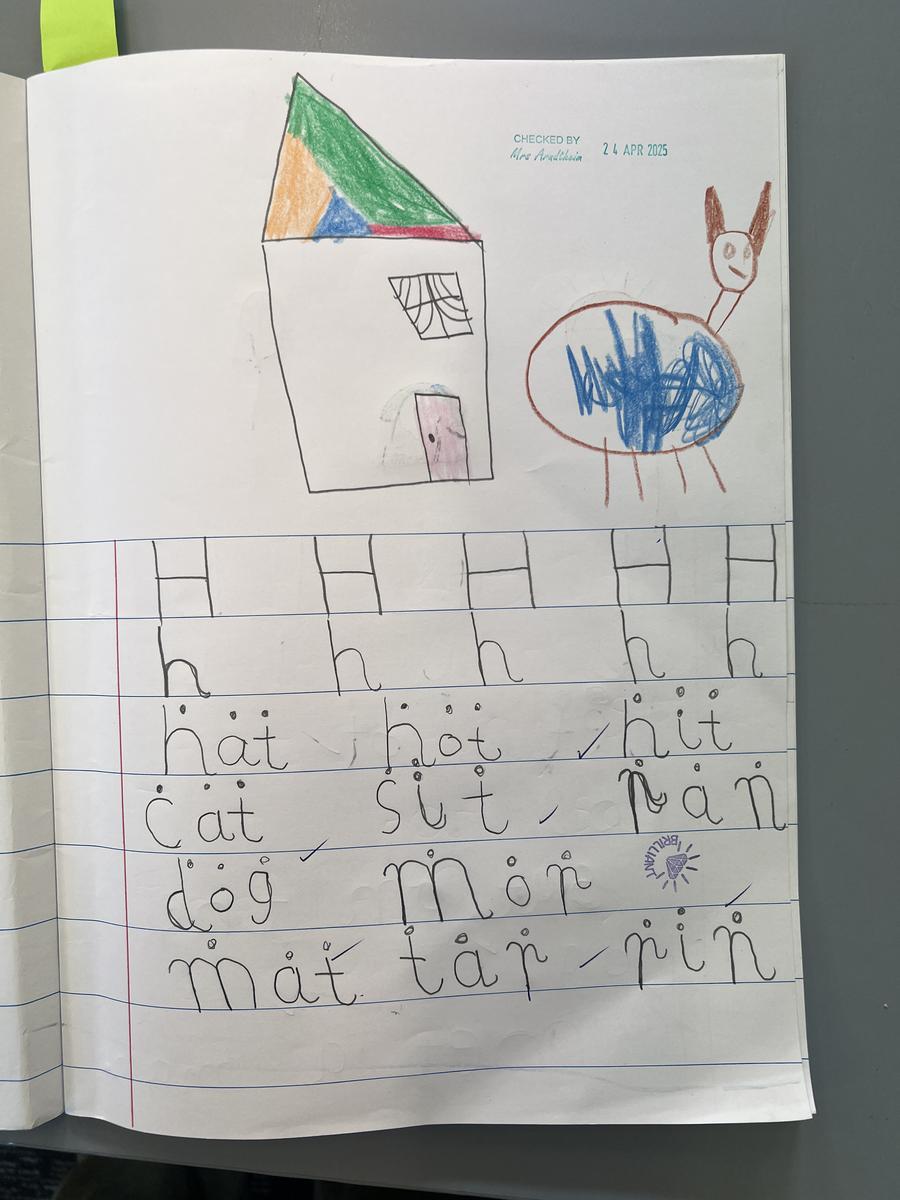 CHECKED BY
Mrs 24 APR 2025
H H H H H
h h h h h
hat hot hit
cat sit pan
dog mop
BRILLIANT
mat tap pin